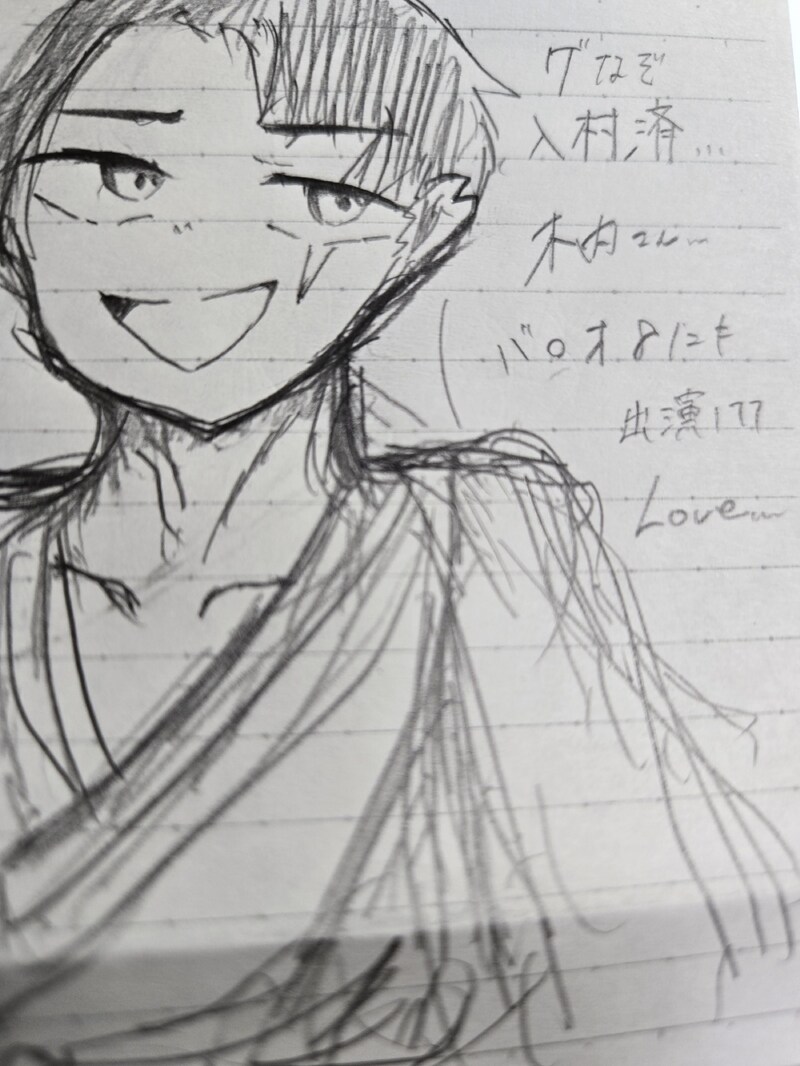 グなぞ
入村済…
木内さん…
バロオ8にも
出演177
Love…